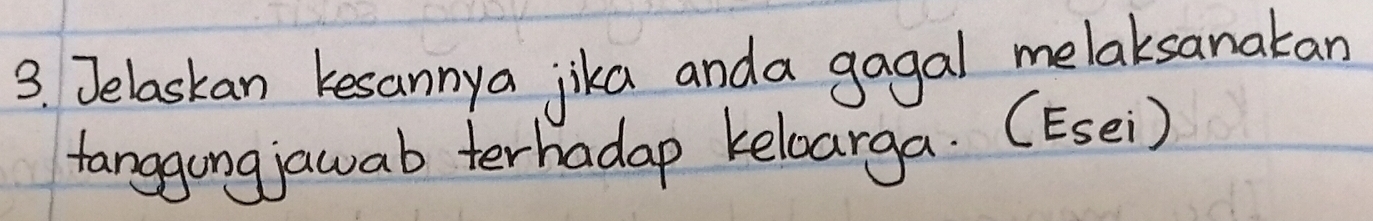 3. Jelaskan kesannya jika anda gagal melaksanakan
tanggungjawab terhadap keluarga. (Esei)